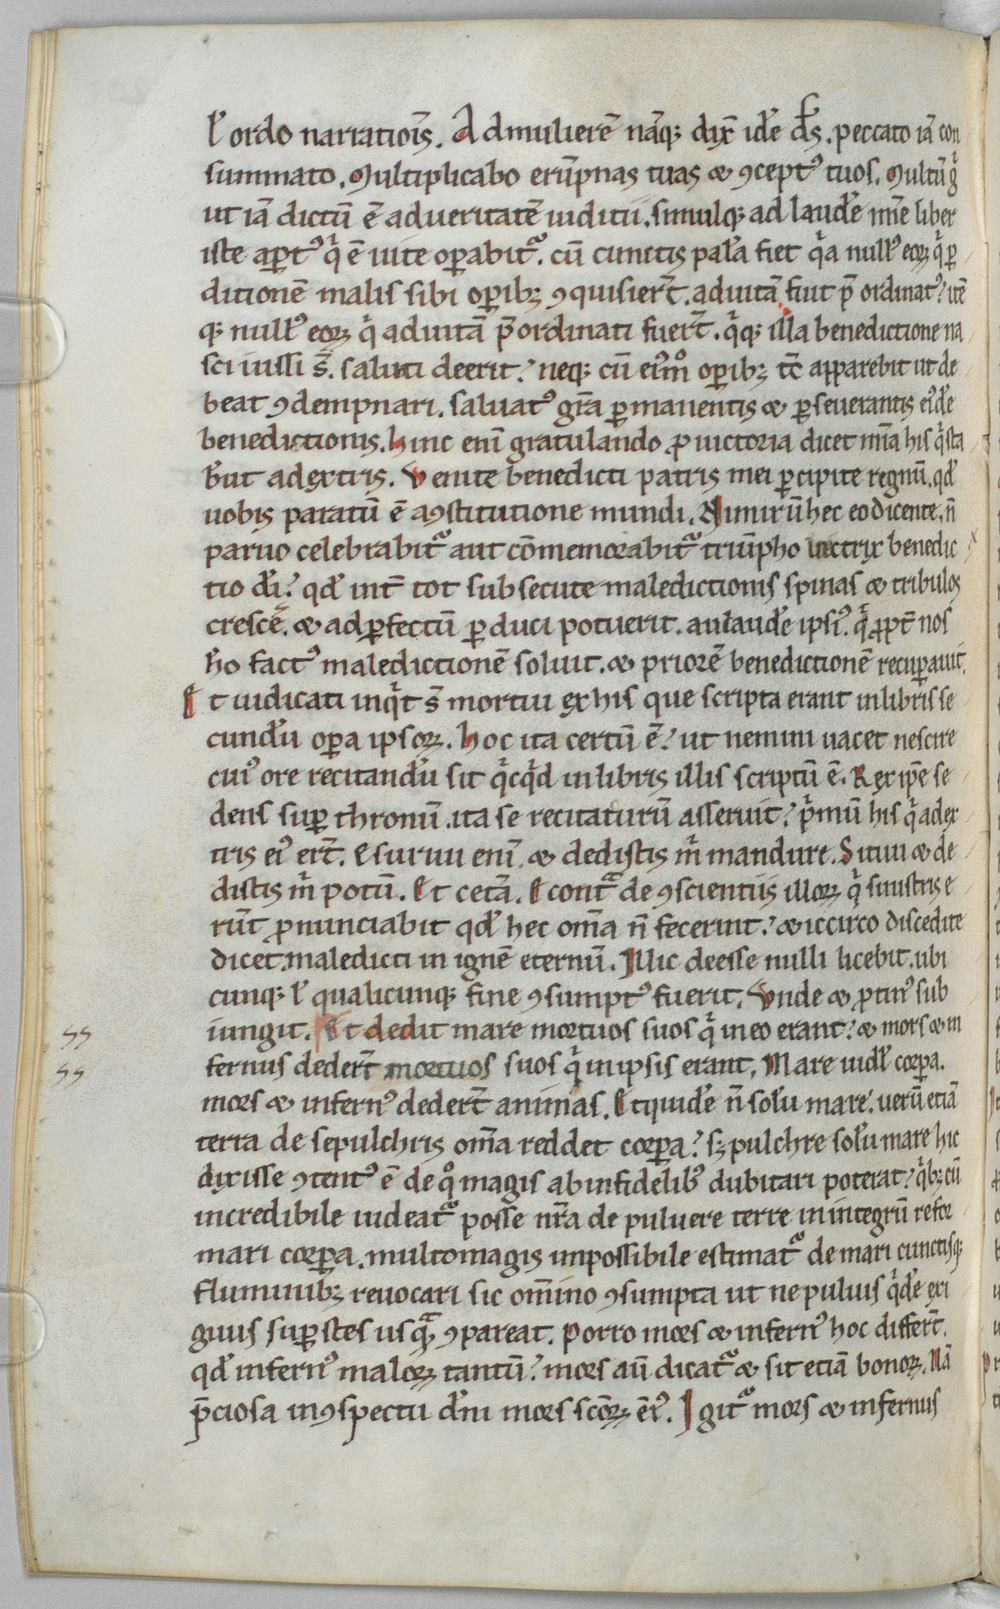 ł ordo narratiois̄. Ad mulierē nāq; dix̄ idē ds̄. peccato iā con
summato. Multiplicabo erūpnas tuas & ꝯceptꝰ tuos. Multū g̊
ut iā dictū ē ad ueritatē iuditii. simulq; ad laudē mīe liber
iste aꝑtꝰ qⁱ ē uite oꝑabit᷑. cū cunctis palā fiet qⁱa nullꝰ eoꝝ qⁱ ꝑ
ditionē malis sibi oꝑibꝫ ꝯquisiert̄. ad uitā fiut p̄ordinatꝰ? itē
q; nullꝰ eoꝝ qⁱ ad uitā p̄ordinati fuert̄. qⁱq; illa benedictione na
sci iussi s̄. saluti deerit? neq; cū eiꝰmͦ oꝑibꝫ tc̄ apparebit ut de
beat ꝯdempnari. saluatꝰ grā ꝑmanentis & ꝑseuerantis eiꝰdē
benedictionis. Hinc enī gratulando ꝓ uictoria dicet mīa his qⁱ sta
bt̄ ad extris. Venite benedicti patris mei ꝑcipite regnū. qđ
uobis paratū ē a ꝯstitutione mundi. Nimirū hec eo dicente. n̄
paruo celebrabit᷑ aut cōmemorabit᷑ triūpho uictrix benedic
tio dī? qđ int̄ tot subsecute maledictionis spinas & tribulos
crescē. & ad ꝑfectū ꝑduci potuerit. ad laudē ipsiꝰ. qⁱ ꝓpt̄ nos
hō factꝰ maledictionē soluit. & priorē benedictionē recuꝑauit.
Et iudicati inqⁱt s̄ mortui ex his que scripta erant in libris se
cundū oꝑa ipsoꝝ. Hoc ita certū ē? ut nemini uacet nescire
cuiꝰ ore recitandū sit qⁱcqⁱd in libris illis scriptū ē. Rex ip̄e se
dens suꝑ thronū. ita se recitaturū asseruit? pⁱmū his qⁱ a dex
tris eiꝰ ert̄. Esuriui enī & dedistis mⁱ mandure. Sitiui & de
distis mⁱ potū. Et cetā. E contᵃ de ꝯscientiis illoꝝ qⁱ sinistris e
rūt ꝓnunciabit qđ hec om̄a n̄ fecerint? & iccirco discedite
dicet. maledicti in ignē eternū. Illic deesse nulli licebit. ubi
cunq; ł qualicunq; fine ꝯsumptꝰ fuerit. Vnde & ꝓtinꝰ sub
iungit. Et dedit mare mortuos suos qⁱ in eo erant? & mors & in
fernus dedert̄ mortuos suos qⁱ in ipsis erant. Mare uidł corꝑa.
mors & infernꝰ dedert̄ animas. Et quidē n̄ solū mare? uerū etiā
terra de sepulchris om̄a reddet corꝑa? sꝫ pulchre solū mare hic
dixisse ꝯtentꝰ ē de qͦ magis ab infidelibꝰ dubitari poterat? qⁱbꝫ cū
incredibile uideat᷑ posse nrā de puluere terre in integrū refor
mari corꝑa. multo magis impossibile estimat᷑ de mari cunctisq;
fluminibꝫ reuocari sic om̄ino ꝯsumpta ut ne puluis qⁱdē exi
guus suꝑstes usqᵃ ꝯpareat. Porro mors & infernꝰ hoc differt̄.
qđ infernꝰ maloꝝ tantū? mors aū dicat᷑ & sit etiā bonoꝝ. Nā
p̄ciosa in ꝯspectu dn̄i mors sc̄oꝝ eiꝰ. Igit᷑ mors & infernus